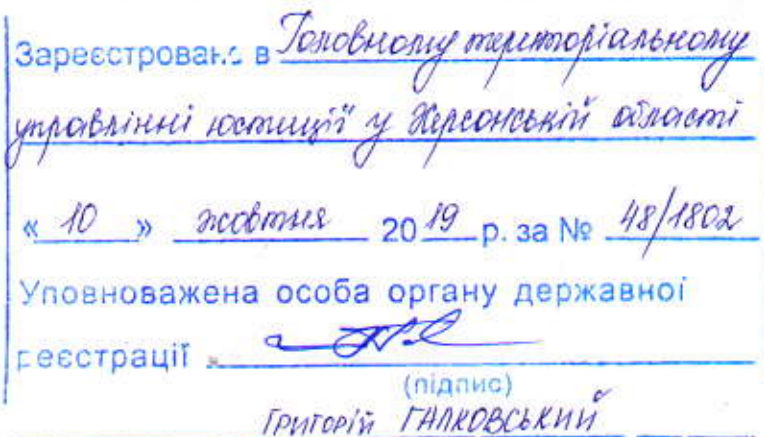 Зареєстровано в Головному територіальному
управлінні юстиції у Херсонській області
« 10 » жовтня 2019 р. за № 48/1802
Уповноважена особа органу державної
реєстрації
(підпис)
Григорій ГАЛКОВСЬКИЙ